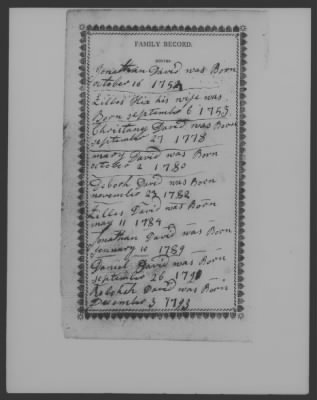 FAMILY RECORD.
BIRTHS
Jonathan David was Born
october 16 1752
Lilles His his wife was
Born september 6 1753
Christang David was Born
september 27 1778
mary David was Born
october 2 1780
Deboroh David was Born
november 27 1782
Lilles David was Born
may 11 1784
Jonathan David was Born
Jenuary 10 1789
Daniel David was Born
september 26 1790
Rebekeh David was Born
December 3 1793